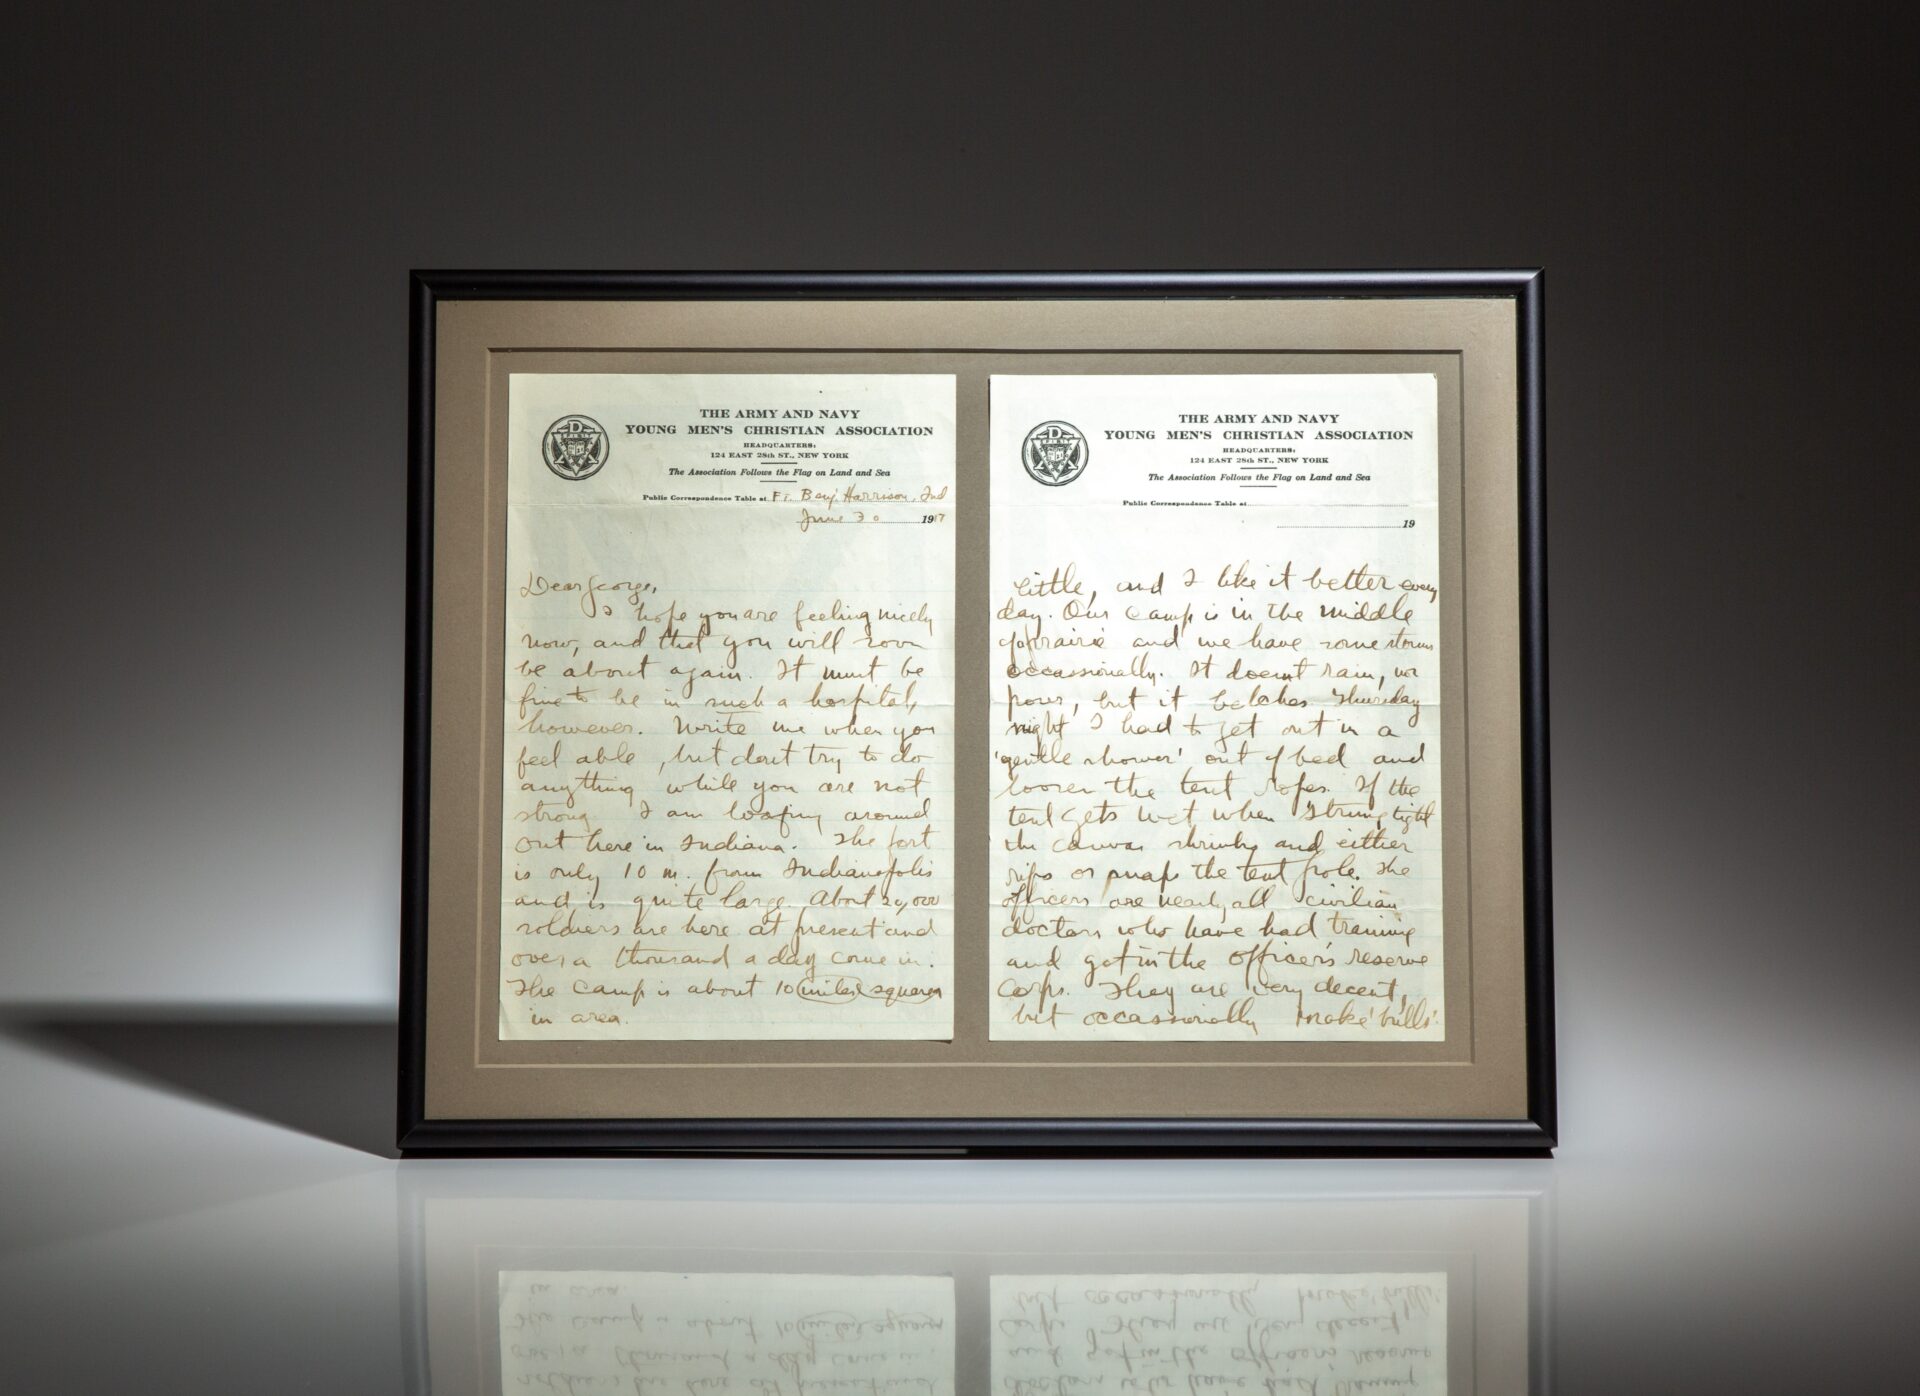 THE ARMY AND NAVY
YOUNG MEN'S CHRISTIAN ASSOCIATION
HEADQUARTERS:
124 EAST 28th ST., NEW YORK
The Association Follows the Flag on Land and Sea
Public Correspondence Table at Ft. Benj Harrison, Ind
June 30 1917
Dear George,
I hope you are feeling nicely
now, and that you will soon
be about again. It must be
fine to be in such a hospital,
however. Write me when you
feel able, but dont try to do
anything while you are not
strong. I am loafing around
out here in Indiana. The fort
is only 10 m. from Indianapolis
and is quite large. About 20,000
soldiers are here at present and
over a thousand a day come in.
The camp is about 10 miles square
in area.
THE ARMY AND NAVY
YOUNG MEN'S CHRISTIAN ASSOCIATION
HEADQUARTERS:
124 EAST 28th ST., NEW YORK
The Association Follows the Flag on Land and Sea
Public Correspondence Table at
19
little, and I like it better every
day. Our camp is in the middle
of prairie and we have some storms
occassionally. It doesnt rain, nor
pour, but it belches Thursday
night I had to get out in a
'gentle shower' out of bed and
loosen the tent ropes. If the
tent gets wet when strung tight
the canvas shrinks and either
rips or snaps the tent pole. The
officers are nearly all civilian
doctors who have had training
and got in the officer's reserve
corps. They are very decent,
but occassionally make 'bulls'.